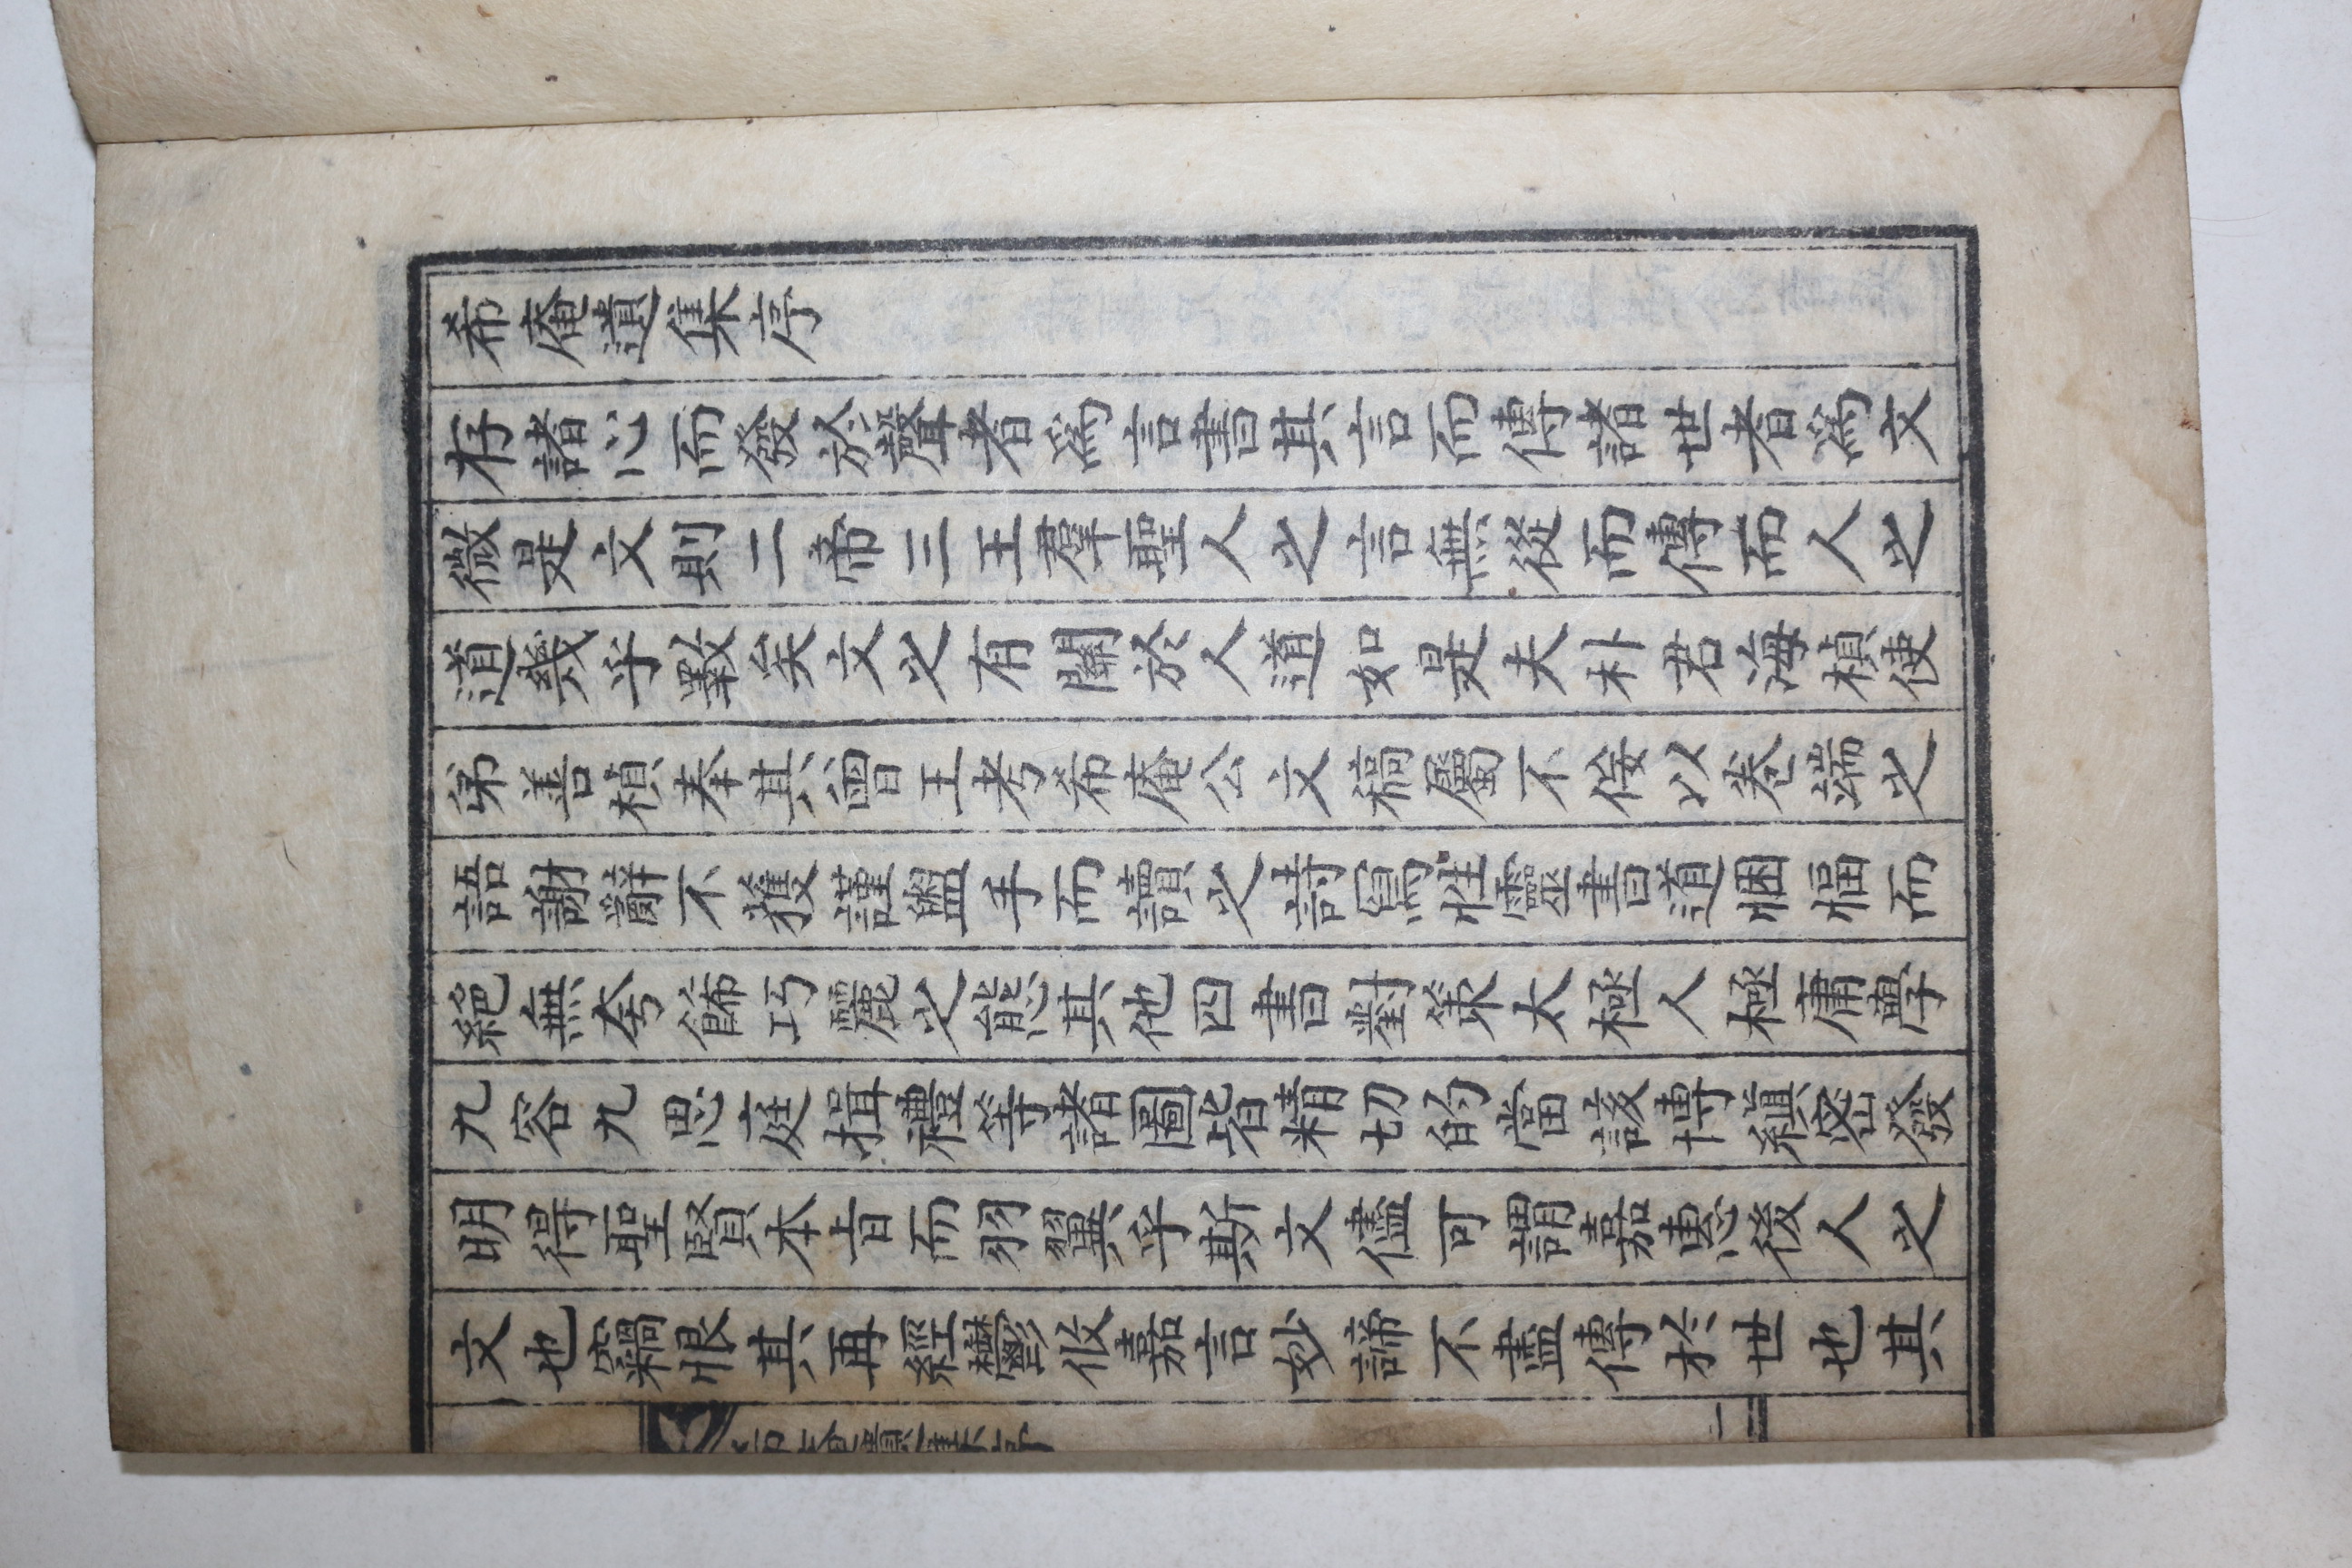 希庵遺集序
存諸心而發於聲者爲言書其言而傳諸世者爲文
微是文則二帝三王群聖人之言無從而傳而人之
道幾乎斁矣文之有關於人道如是夫朴君海楨使
弟善楨奉其曾王考希庵公文稿屬不佞以卷端之
語謝辭不獲謹盥手而讀之詩寫性靈書道悃愊而
絕無夸餙巧麗之態其他四書對策太極人極庸學
九容九思庭揖禮等諸圖皆精切的當該博縝密發
明得聖賢本旨而羽翼乎斯文儘可謂嘉惠後人之
文也竊恨其再經鬱攸嘉言妙諦不盡傳於世也其
希庵遺集序
一